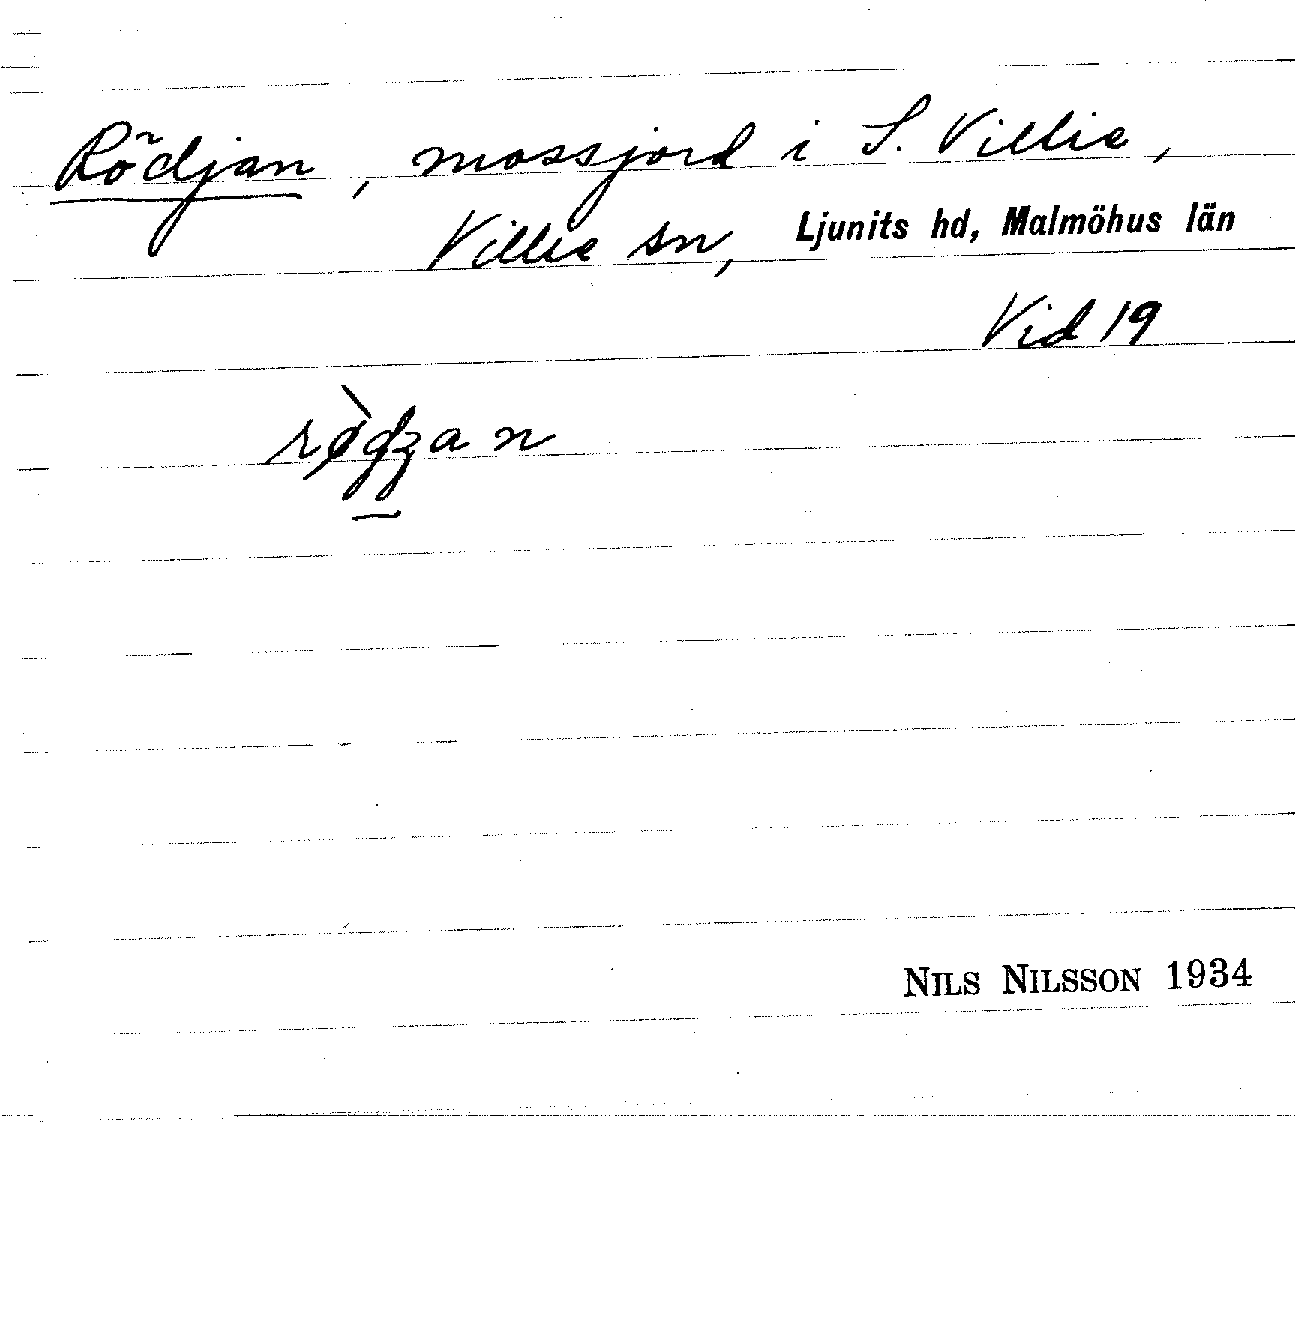 Rödjan, mossjord i S. Villie,
Villie sn, Ljunits hd, Malmöhus län
Vid 19
NILS NILSSON 1934